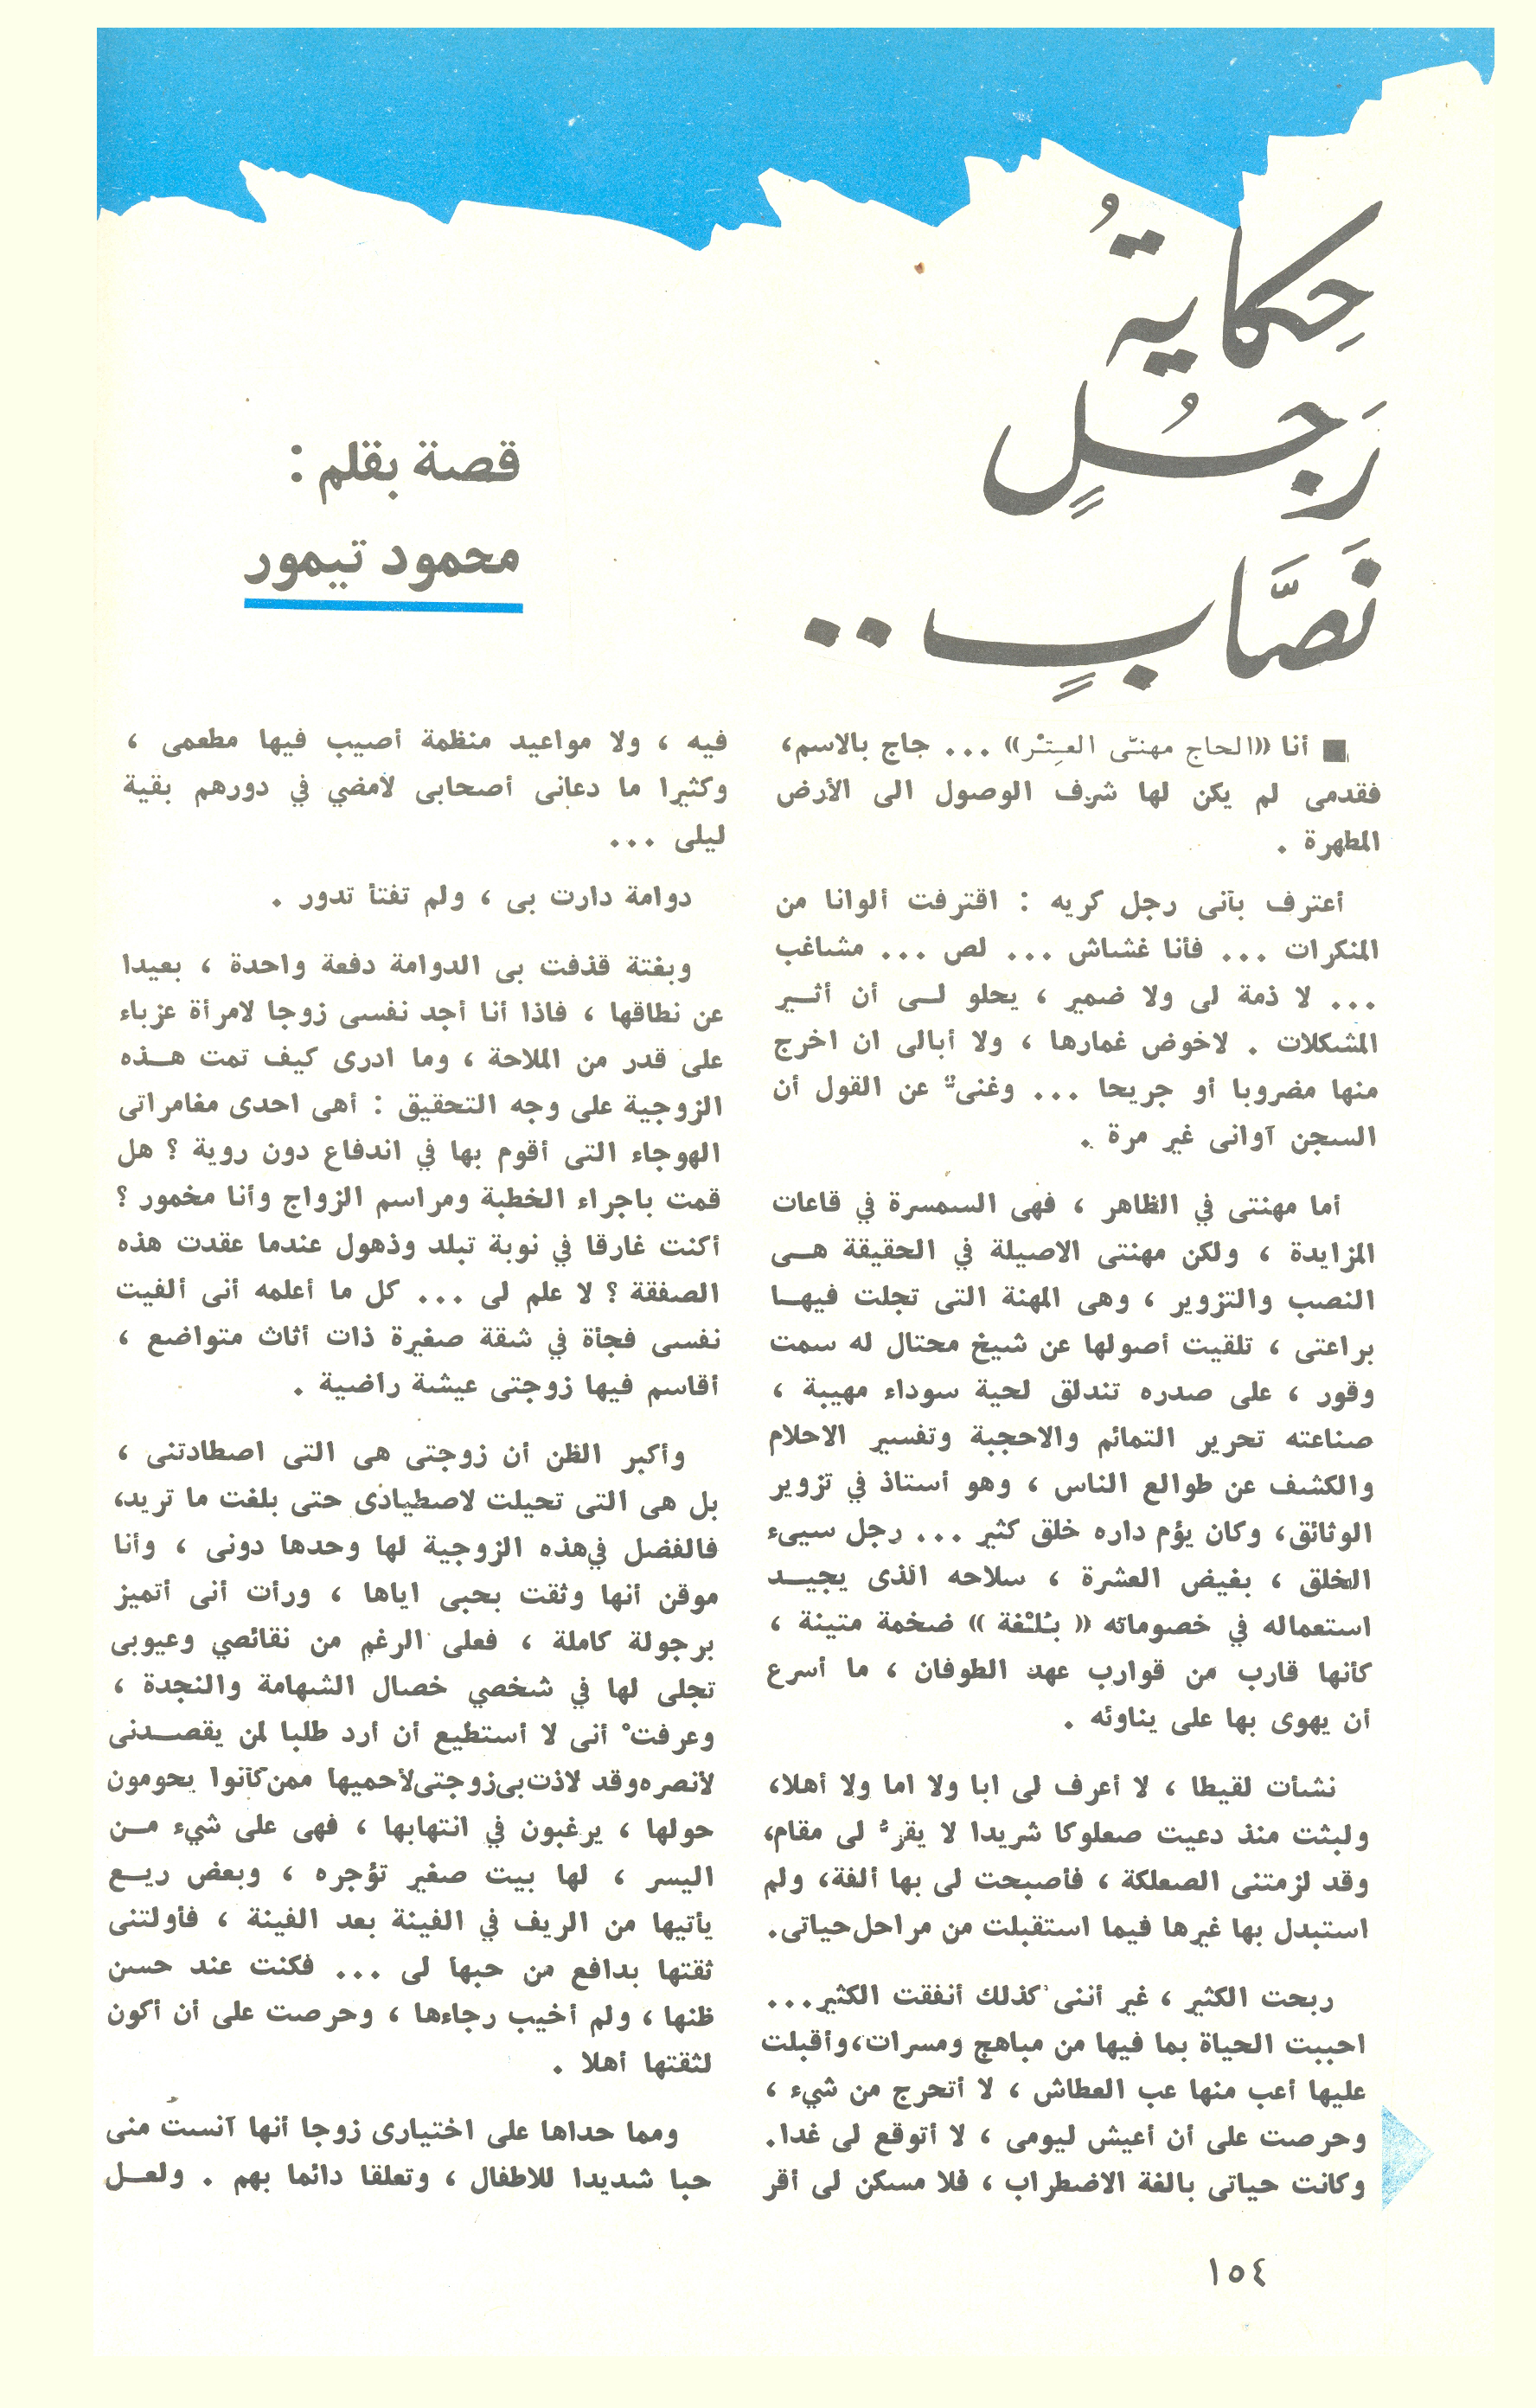 حِكايةُ
رَجُلٍ
نَصَّابٍ ..
قصة بقلم :
محمود تيمور
■ أنا «الحاج مهنتّى العِتْر» ... حاج بالاسم،
فقدمى لم يكن لها شرف الوصول الى الأرض
المطهرة .
أعترف بآنى رجل كريه : اقترفت ألوانا من
المنكرات ... فأنا غشاش ... لص ... مشاغب
... لا ذمة لى ولا ضمير ، يحلو لى أن أثير
المشكلات . لاخوض غمارها ، ولا أبالى ان اخرج
منها مضروبا أو جريحا ... وغنىٌّ عن القول أن
السجن آوانى غير مرة .
أما مهنتى في الظاهر ، فهى السمسرة في قاعات
المزايدة ، ولكن مهنتى الاصيلة في الحقيقة هى
النصب والتزوير ، وهى المهنة التى تجلت فيها
براعتى ، تلقيت أصولها عن شيخ محتال له سمت
وقور ، على صدره تندلق لحية سوداء مهيبة ،
صناعته تحرير التمائم والاحجبة وتفسير الاحلام
والكشف عن طوالع الناس ، وهو أستاذ في تزوير
الوثائق، وكان يؤم داره خلق كثير ... رجل سيىء
الخلق ، بغيض العشرة ، سلاحه الذى يجيد
استعماله في خصوماته « بُلْغة » ضخمة متينة ،
كأنها قارب من قوارب عهد الطوفان ، ما أسرع
أن يهوى بها على يناوئه .
نشأت لقيطا ، لا أعرف لى ابا ولا اما ولا أهلا،
ولبثت منذ دعيت صعلوكا شريدا لا يقرُّ لى مقام،
وقد لزمتنى الصعلكة ، فأصبحت لى بها ألفة، ولم
استبدل بها غيرها فيما استقبلت من مراحل حياتى.
ربحت الكثير ، غير أننى كذلك أنفقت الكثير...
احببت الحياة بما فيها من مباهج ومسرات،وأقبلت
عليها أعب منها عب العطاش ، لا أتحرج من شيء ،
وحرصت على أن أعيش ليومى ، لا أتوقع لى غدا.
وكانت حياتى بالغة الاضطراب ، فلا مسكن لى أقر
فيه ، ولا مواعيد منظمة أصيب فيها مطعمى ،
وكثيرا ما دعانى أصحابى لأمضي في دورهم بقية
ليلى ...
دوامة دارت بى ، ولم تفتأ تدور .
وبغتة قذفت بى الدوامة دفعة واحدة ، بعيدا
عن نطاقها ، فاذا أنا أجد نفسى زوجا لامرأة عزباء
على قدر من الملاحة ، وما ادرى كيف تمت هذه
الزوجية على وجه التحقيق : أهى احدى مغامراتى
الهوجاء التى أقوم بها في اندفاع دون روية ؟ هل
قمت باجراء الخطبة ومراسم الزواج وأنا مخمور ؟
أكنت غارقا في نوبة تبلد وذهول عندما عقدت هذه
الصفقة ؟ لا علم لى ... كل ما أعلمه أنى ألفيت
نفسى فجأة في شقة صغيرة ذات أثاث متواضع ،
أقاسم فيها زوجتى عيشة راضية .
وأكبر الظن أن زوجتى هى التى اصطادتنى ،
بل هى التى تحيلت لاصطيادى حتى بلغت ما تريد،
فالفضل في هذه الزوجية لها وحدها دونى ، وأنا
موقن أنها وثقت بحبى اياها ، ورأت أنى أتميز
برجولة كاملة ، فعلى الرغم من نقائصي وعيوبى
تجلى لها في شخصي خصال الشهامة والنجدة ،
وعرفتْ أنى لا أستطيع أن أرد طلبا لمن يقصدنى
لأنصره وقد لاذت بى زوجتى لأحميها ممن كآنوا يحومون
حولها ، يرغبون في انتهابها ، فهى على شيء من
اليسر ، لها بيت صغير تؤجره ، وبعض ريع
يأتيها من الريف في الفينة بعد الفينة ، فأولتنى
ثقتها بدافع من حبها لى ... فكنت عند حسن
ظنها ، ولم أخيب رجاءها ، وحرصت على أن أكون
لثقتها أهلا .
ومما حداها على اختيارى زوجا أنها آنست منى
حبا شديدا للاطفال ، وتعلقا دائما بهم . ولعل
١٥٤